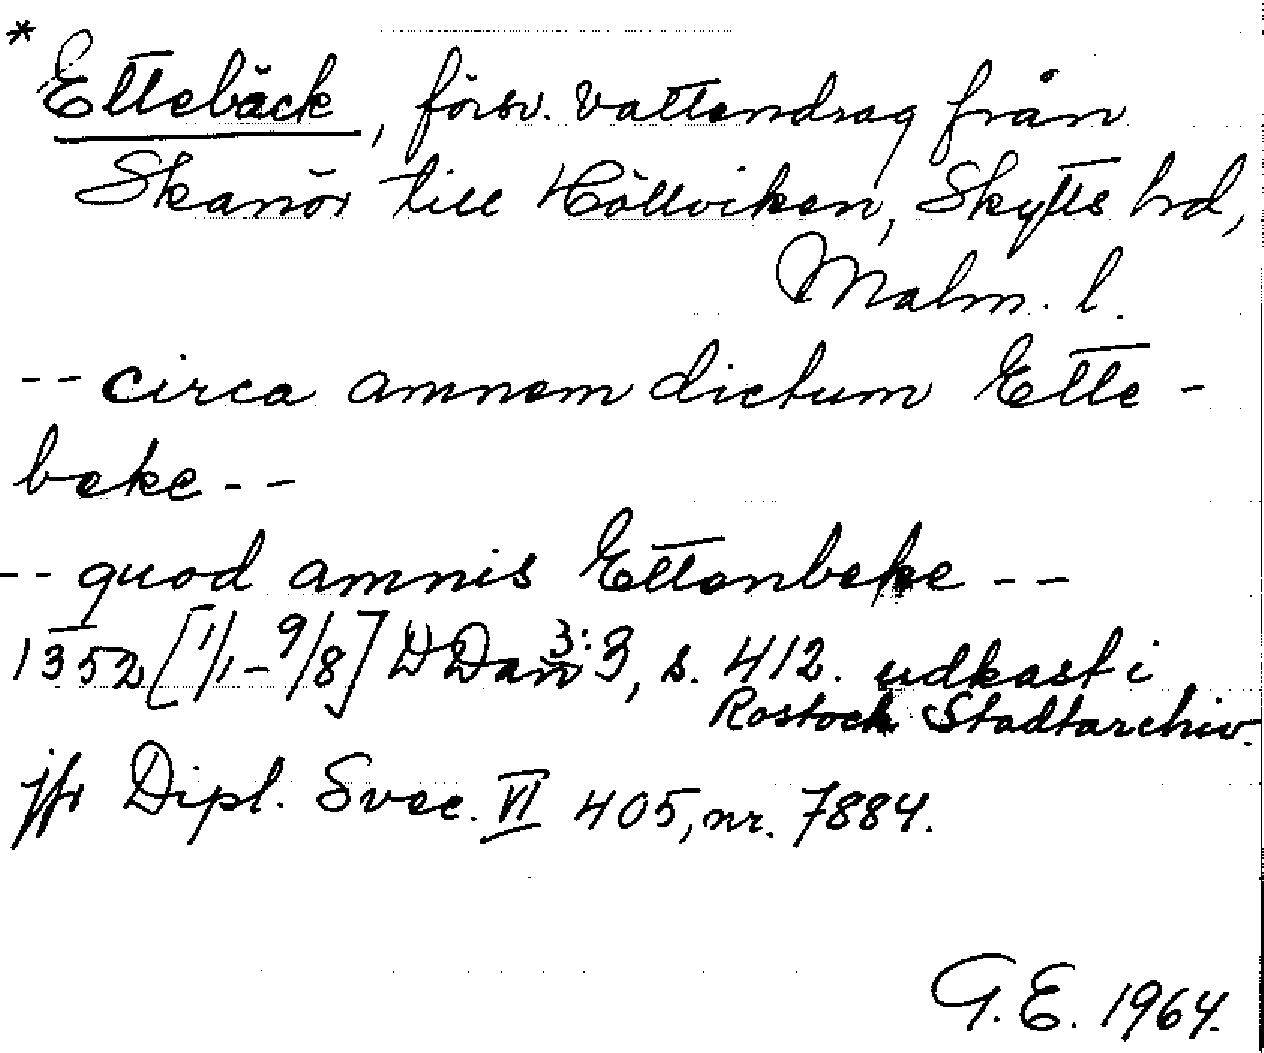 * Ettebäck, försv. vattendrag från
Skanör till Höllviken, Skytts hd,
Malm. l.
-- circa amnem dictum Ette-
beke --
-- quod amnis Ettenbeke --
1352 [1/1-9/8] DDan 3:3, s. 412. udkast i
Rostock Stadtarchiv.
jfr Dipl. Svec. VI 405, nr. 7884.
G.E. 1964.